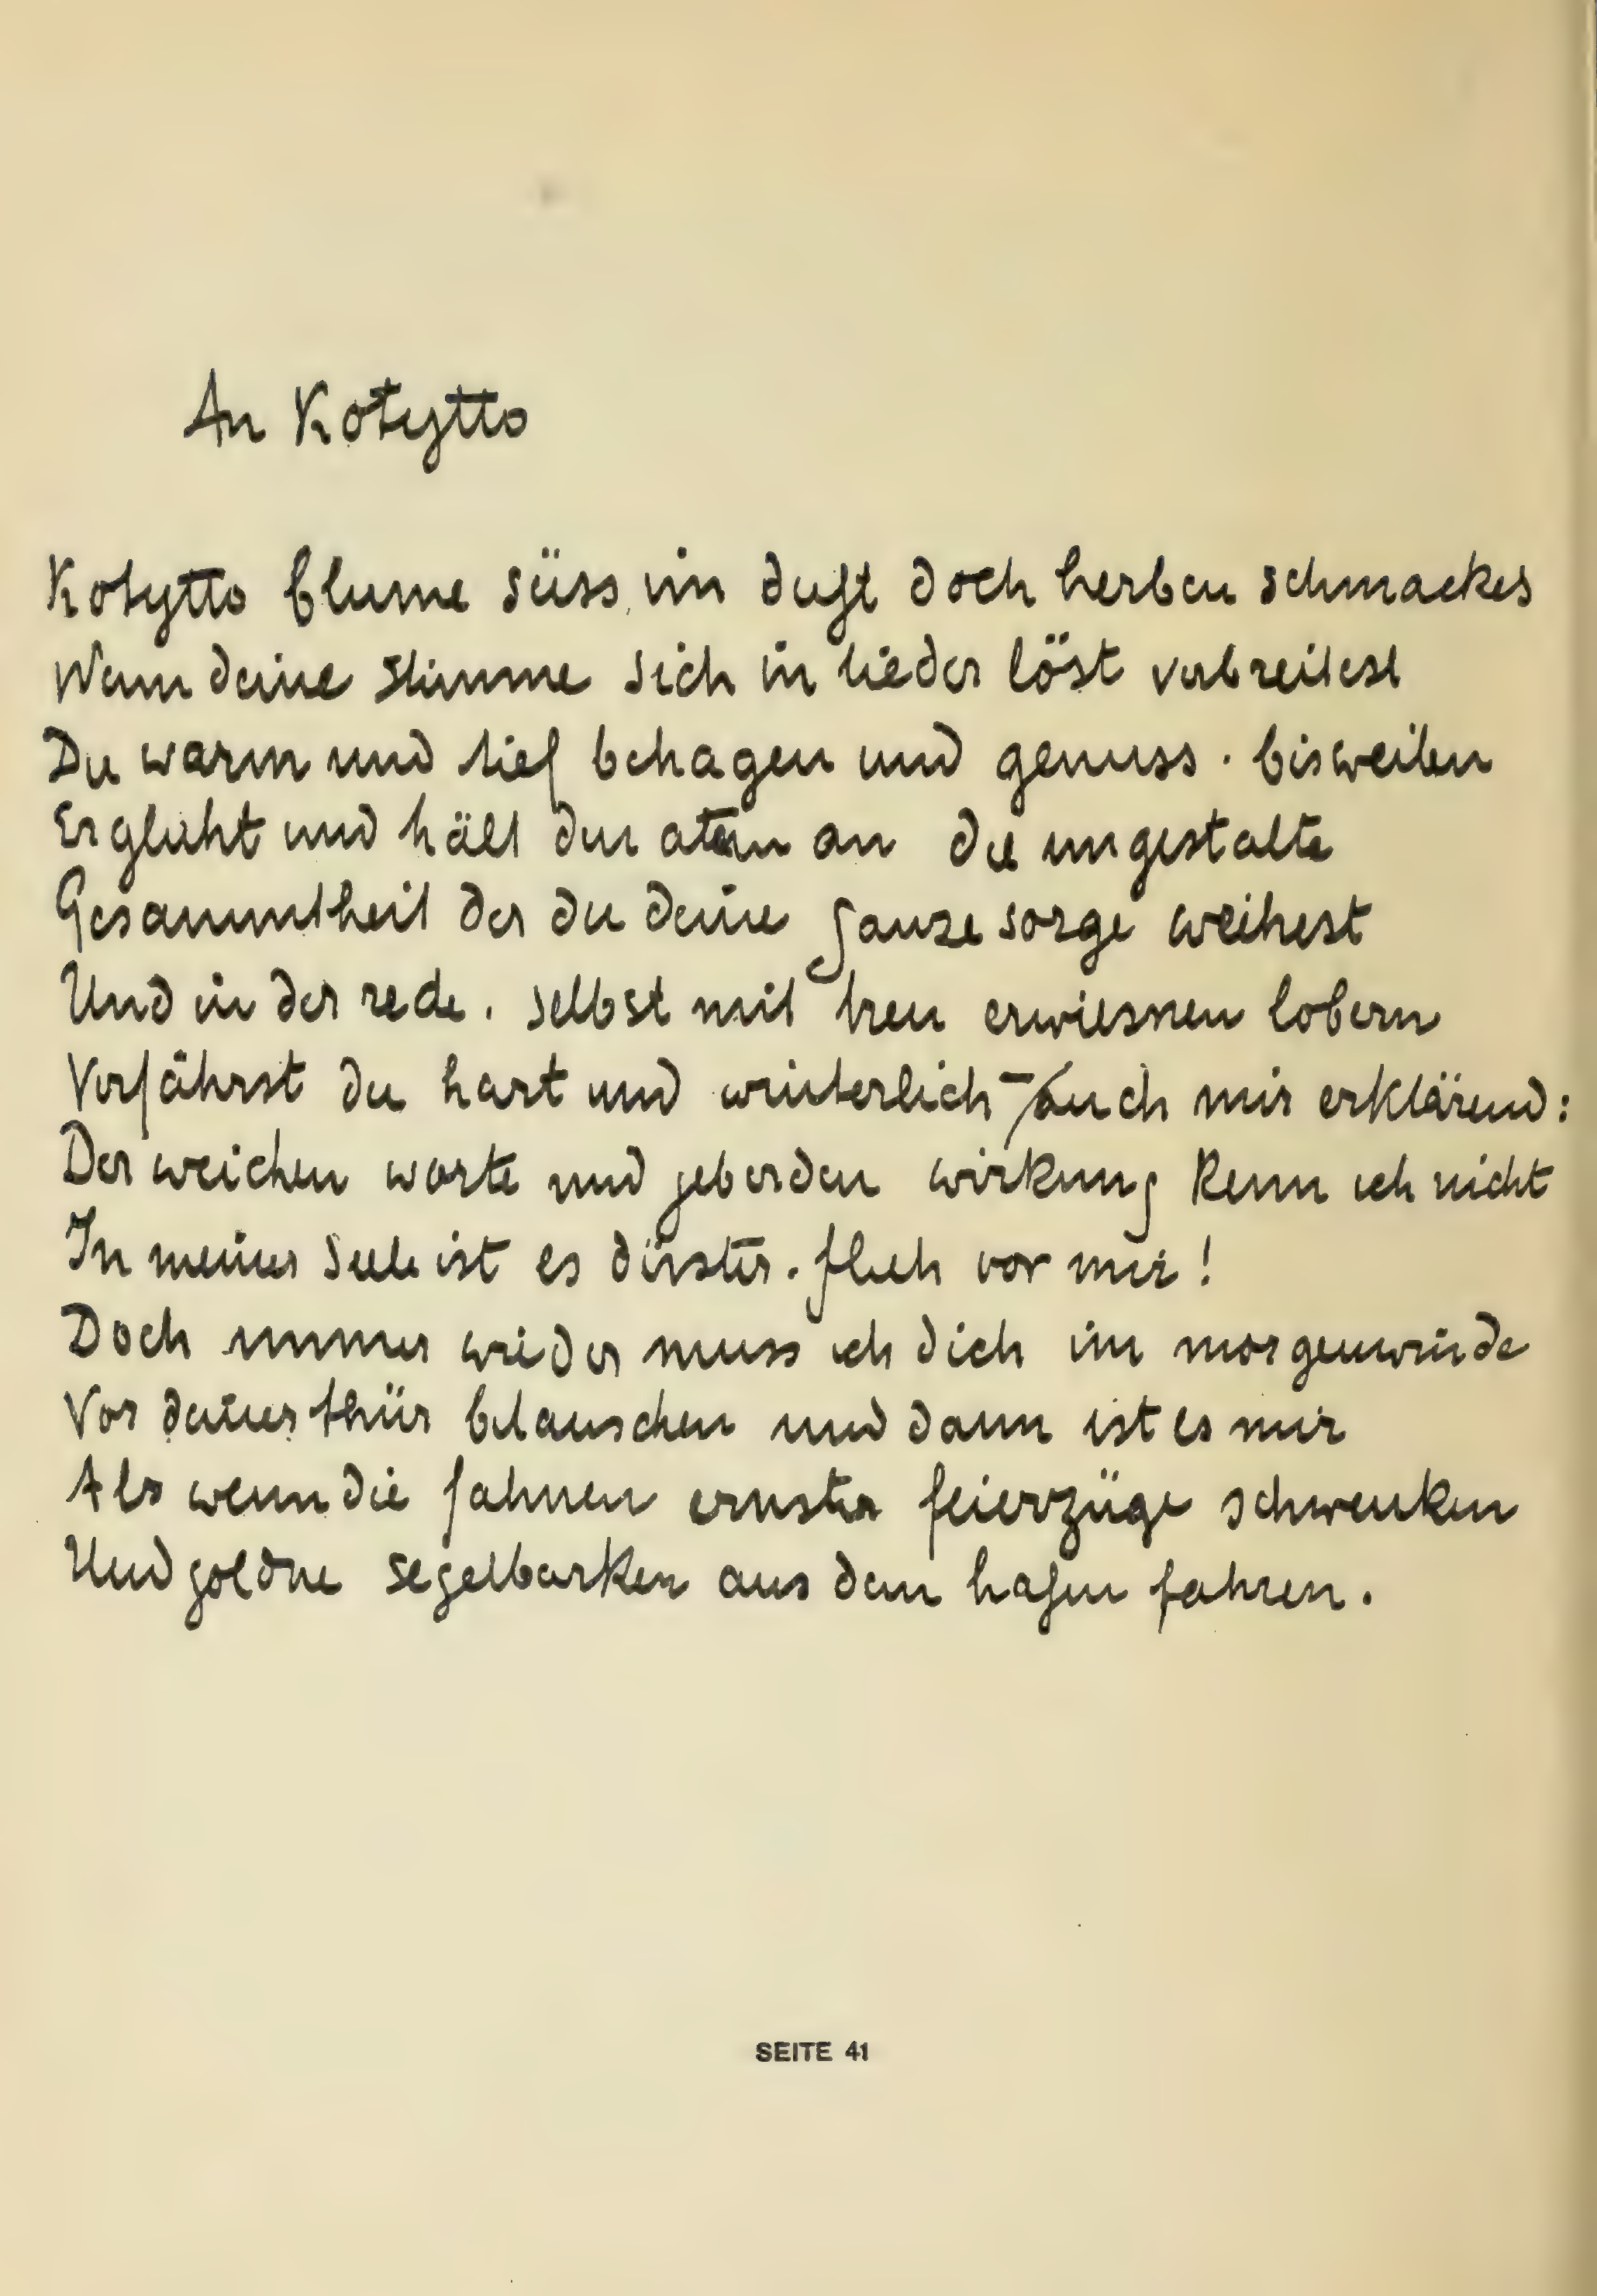 An Kotytto
Kotytto blume süss im duft doch herben schmackes
Wenn deine stimme sich in lieder löst verbreitest
Du warm und tief behagen und genuss · bisweilen
Erglüht und hält den atem an die ungestalte
Gesammtheit der du deine ganze sorge weihest
Und in der rede . selbst mit treu erwiesnen lobern
Verfährst du hart und winterlich – auch mir erklärend:
Der weichen worte und geberden wirkung kenn ich nicht
In meiner seele ist es düster . flieh vor mir !
Doch immer wieder muss ich dich im morgenwinde
Vor deiner thür belauschen und dann ist es mir
Als wenn die fahnen ernster feierzüge schwenken
Und goldne segelbarken aus dem hafen fahren .
SEITE 41